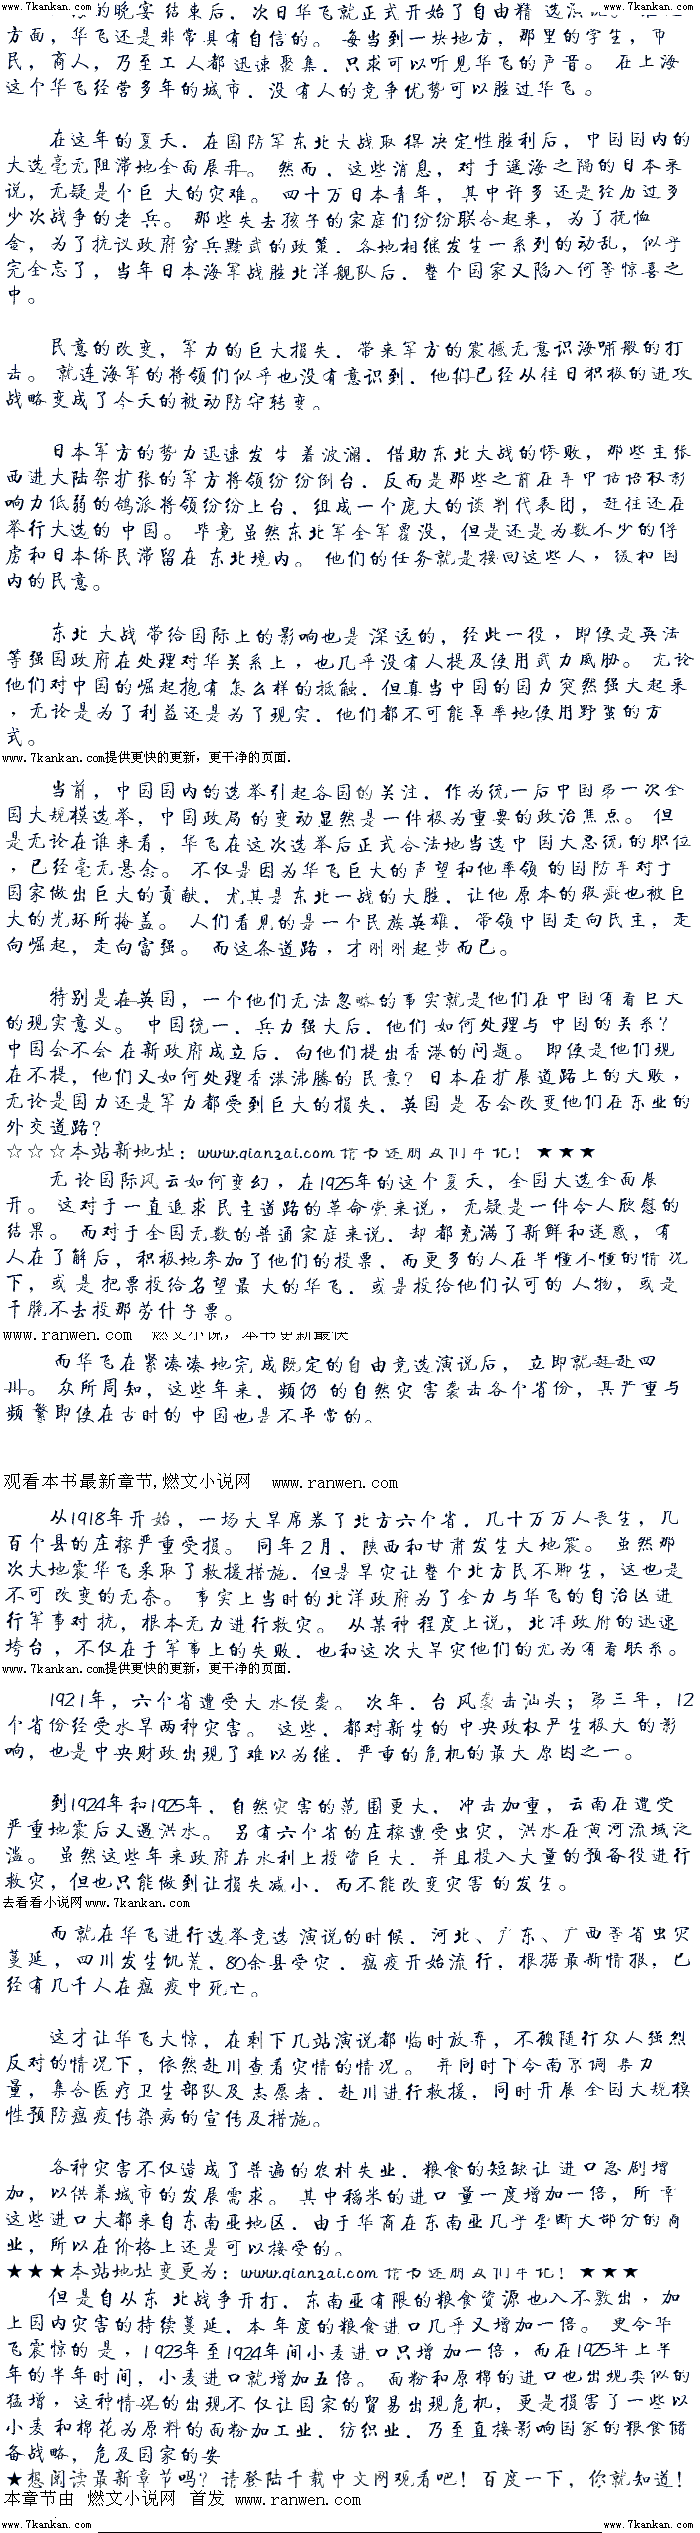 www.7kankan.com www.7kankan.com
的晚宴结束后，次日华飞就正式开始了自由精选演说。
方面，华飞还是非常具有自信的。每当到一块地方，那里的学生，市
民，商人，乃至工人都迅速聚集，只求可以听见华飞的声音。在上海
这个华飞经营多年的城市，没有人的竞争优势可以胜过华飞。
在这年的夏天，在国防军东北大战取得决定性胜利后，中国国内的
大选毫无阻滞地全面展开。然而，这些消息，对于遥海之隔的日本来
说，无疑是个巨大的灾难。四十万日本青年，其中许多还是经历过多
少次战争的老兵。那些失去孩子的家庭们纷纷联合起来，为了抚恤
金，为了抗议政府穷兵黩武的政策，各地相继发生一系列的动乱，似乎
完全忘了，当年日本海军战胜北洋舰队后，整个国家又陷入何等惊喜之
中。
民意的改变，军力的巨大损失，带来军方的震撼无意识海啸般的打
击。就连海军的将领们似乎也没有意识到，他们已经从往日积极的进攻
战略变成了今天的被动防守转变。
日本军方的势力迅速发生着波澜，借助东北大战的惨败，那些主张
西进大陆架扩张的军方将领纷纷倒台，反而是那些之前在军中话语权影
响力低弱的鸽派将领纷纷上台，组成一个庞大的谈判代表团，赶往还在
举行大选的中国。毕竟虽然东北军全军覆没，但是还是为数不少的俘
虏和日本侨民滞留在东北境内。他们的任务就是接回这些人，缓和国
内的民意。
东北大战带给国际上的影响也是深远的，经此一役，即便是英法
等强国政府在处理对华关系上，也几乎没有人提及使用武力威胁。无论
他们对中国的崛起抱有怎么样的抵触，但真当中国的国力突然强大起来
，无论是为了利益还是为了现实，他们都不可能草率地使用野蛮的方
式。
www.7kankan.com提供更快的更新，更干净的页面.
当前，中国国内的选举引起各国的关注，作为统一后中国第一次全
国大规模选举，中国政局的变动显然是一件极为重要的政治焦点。但
是无论在谁来看，华飞在这次选举后正式合法地当选中国大总统的职位
，已经毫无悬念。不仅是因为华飞巨大的声望和他率领的国防军对于
国家做出巨大的贡献，尤其是东北一战的大胜，让他原本的瑕疵也被巨
大的光环所掩盖。人们看见的是一个民族英雄，带领中国走向民主，走
向崛起，走向富强。而这条道路，才刚刚起步而已。
特别是在英国，一个他们无法忽略的事实就是他们在中国有着巨大
的现实意义。中国统一，兵力强大后，他们如何处理与中国的关系？
中国会不会在新政府成立后，向他们提出香港的问题。即便是他们现
在不提，他们又如何处理香港沸腾的民意？日本在扩展道路上的大败，
无论是国力还是军力都受到巨大的损失，英国是否会改变他们在东亚的
外交道路？
☆☆☆本站新地址：www.qianzai.com 请书迷朋友们牢记！★★★
无论国际风云如何变幻，在1925年的这个夏天，全国大选全面展
开。这对于一直追求民主道路的革命党来说，无疑是一件令人欣慰的
结果。而对于全国无数的普通家庭来说，却都充满了新鲜和迷惑，有
人在了解后，积极地参加了他们的投票，而更多的人在半懂不懂的情况
下，或是把票投给名望最大的华飞，或是投给他们认可的人物，或是
干脆不去投那劳什子票。
www.ranwen.com 燃文小说，本书更新最快
而华飞在紧凑凑地完成既定的自由竞选演说后，立即就赶赴四
川。众所周知，这些年来，频仍的自然灾害袭击各个省份，其严重与
频繁即使在古时的中国也是不平常的。
观看本书最新章节,燃文小说网 www.ranwen.com
从1918年开始，一场大旱席卷了北方六个省，几十万万人丧生，几
百个县的庄稼严重受损。同年2月，陕西和甘肃发生大地震。虽然那
次大地震华飞采取了救援措施，但是旱灾让整个北方民不聊生，这也是
不可改变的无奈。事实上当时的北洋政府为了全力与华飞的自治区进
行军事对抗，根本无力进行救灾。从某种程度上说，北洋政府的迅速
垮台，不仅在于军事上的失败，也和这次大旱灾他们的无为有着联系。
www.7kankan.com提供更快的更新，更干净的页面.
1921年，六个省遭受大水侵袭。次年，台风袭击汕头；第三年，12
个省份经受水旱两种灾害。这些，都对新生的中央政权产生极大的影
响，也是中央财政出现了难以为继，严重的危机的最大原因之一。
到1924年和1925年，自然灾害的范围更大，冲击加重，云南在遭受
严重地震后又遇洪水。另有六个省的庄稼遭受虫灾，洪水在黄河流域泛
滥。虽然这些年来政府在水利上投资巨大，并且投入大量的预备役进行
救灾，但也只能做到让损失减小，而不能改变灾害的发生。
去看看小说网www.7kankan.com
而就在华飞进行选举竞选演说的时候，河北、广东、广西等省虫灾
蔓延，四川发生饥荒，80余县受灾，瘟疫开始流行，根据最新情报，已
经有几千人在瘟疫中死亡。
这才让华飞大惊，在剩下几站演说都临时放弃，不顾随行众人强烈
反对的情况下，依然赴川查看灾情的情况。并同时下令南京调集力
量，集合医疗卫生部队及志愿者，赴川进行救援，同时开展全国大规模
性预防瘟疫传染病的宣传及措施。
各种灾害不仅造成了普遍的农村失业，粮食的短缺让进口急剧增
加，以供养城市的发展需求。其中稻米的进口量一度增加一倍，所幸
这些进口大都来自东南亚地区，由于华裔在东南亚几乎垄断大部分的商
业，所以在价格上还是可以接受的。
★★★本站地址变更为：www.qianzai.com 请书迷朋友们牢记！★★★
但是自从东北战争开打，东南亚有限的粮食资源也入不敷出，加
上国内灾害的持续蔓延，本年度的粮食进口几乎又增加一倍。更令华
飞震惊的是，1923年至1924年间小麦进口只增加一倍，而在1925年上半
年的半年时间，小麦进口就增加五倍。面粉和原棉的进口也出现类似的
猛增，这种情况的出现不仅让国家的贸易出现危机，更是损害了一些以
小麦和棉花为原料的面粉加工业，纺织业，乃至直接影响国家的粮食储
备战略，危及国家的安
★想阅读最新章节吗？请登陆千载中文网观看吧！百度一下，你就知道！
本章节由 燃文小说网 首发 www.ranwen.com
www.7kankan.com www.7kankan.com